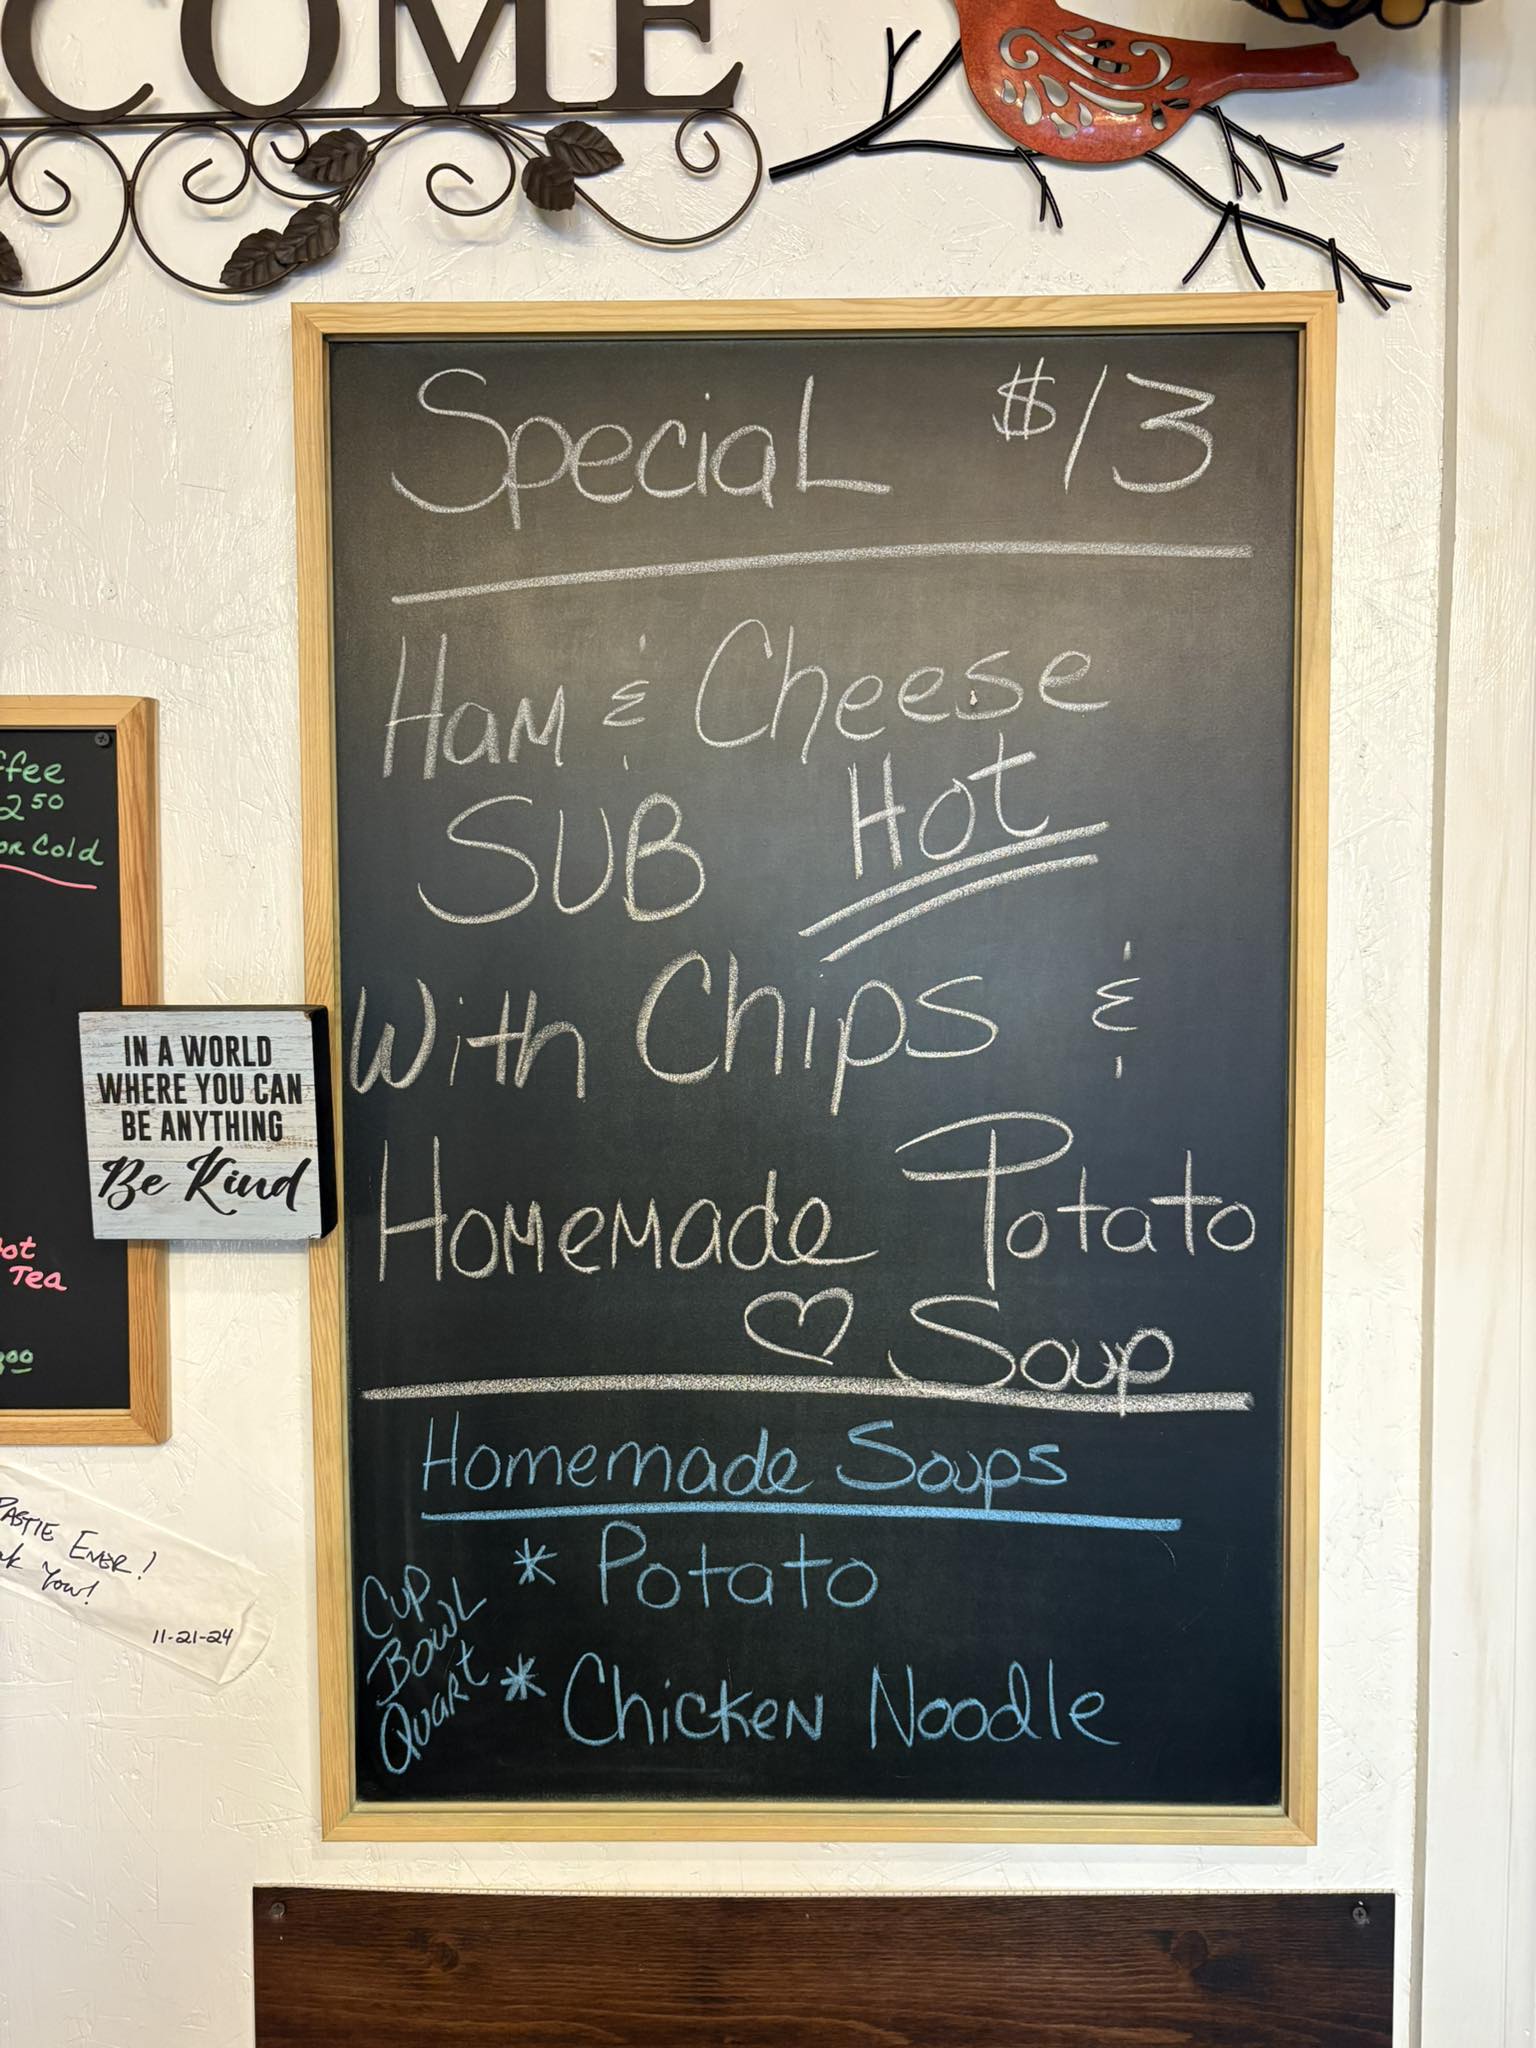 COME
Special $13
Ham & Cheese
SUB Hot
With Chips &
Homemade Potato
Soup
Homemade Soups
* Potato
* Chicken Noodle
Cup
Bowl
Quart
ffee
2 50
or Cold
ot
Tea
00
IN A WORLD
WHERE YOU CAN
BE ANYTHING
Be Kind
PASTIE EVER!
You!
11-21-24